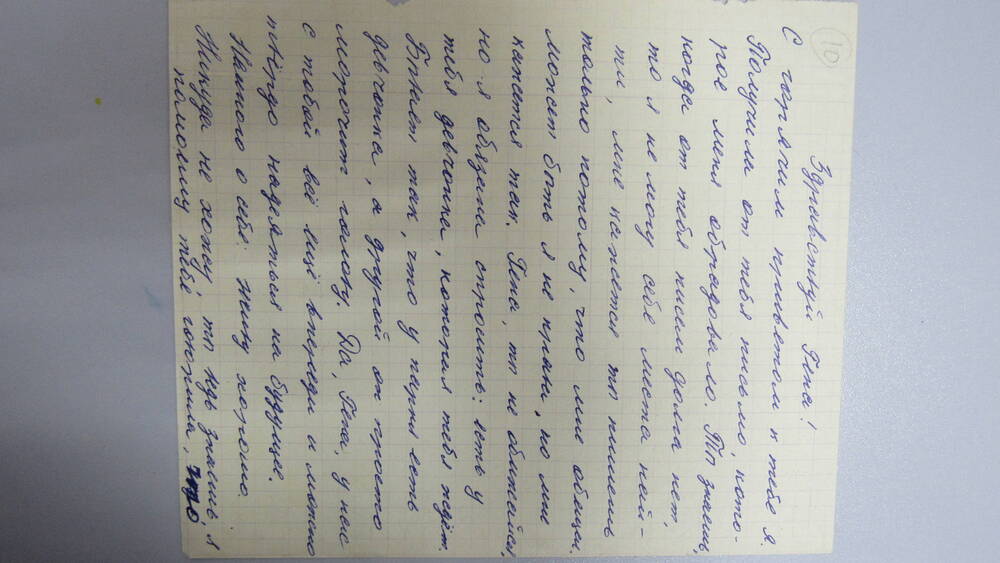 10
Здравствуй Гена!
С горячим приветом к тебе я.
Получила от тебя письмо, кото-
рое меня обрадовало. Ты знаешь,
когда от тебя писем долга нет,
то я не могу себе места най-
ти, мне кажется ты пишешь
только потому, что мне обещал,
может быть я не права, но мне
кажется так. Гена, ты не обижайся,
но я обязана спросить: есть у
тебя девчонка, которая тебя ждёт.
Бывает так, что у парня есть
девчонка, а другой он просто
морочит голову. Да, Гена, у нас
с тобой всё ещё впереди и можно
твёрдо надеяться на будущее.
Немного о себе: живу хорошо.
Никуда не хожу, ты ведь знаешь, я
по-моему тебе говорила, что